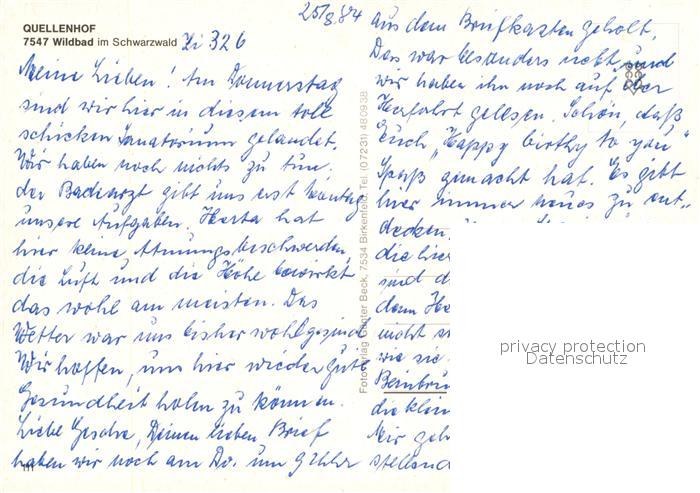 QUELLENHOF
7547 Wildbad im Schwarzwald
Zi 326
25/8.84
Meine Lieben! Am Donnerstag
sind wir hier in diesem toll
schicken Sanatorium gelandet.
Wir haben noch nichts zu tun,
der Badearzt gibt uns erst Montag
unsere Aufgaben. Herta hat
hier keine Atmungsbeschwerden,
die Luft und die Höhe bewirkt
das wohl am meisten. Das
Wetter war uns bisher wohlgesinnt
Wir hoffen, uns hier wieder gute
Gesundheit holen zu können.
Liebe Gesche, Deinen lieben Brief
haben wir noch am Do. um 9 Uhr
aus dem Briefkasten geholt,
Das war besonders nett und
wir haben ihn noch auf der
Herfahrt gelesen. Schön, daß
Euch "Happy birthy to you"
Spaß gemacht hat. Es gibt
hier immer neues zu ent-
decken,
die hier
sind d
denn He
nicht s
wie sie
Beinbru
die klein
Mir geh
stellend
Fotoverlag Günter Beck, 7534 Birkenfeld, Tel. (07231) 480938
privacy protection
Datenschutz